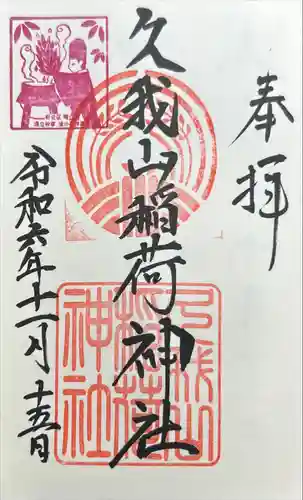 奉拝
久我山稲荷神社
久我山
稲荷
神社
令和六年十一月十五日